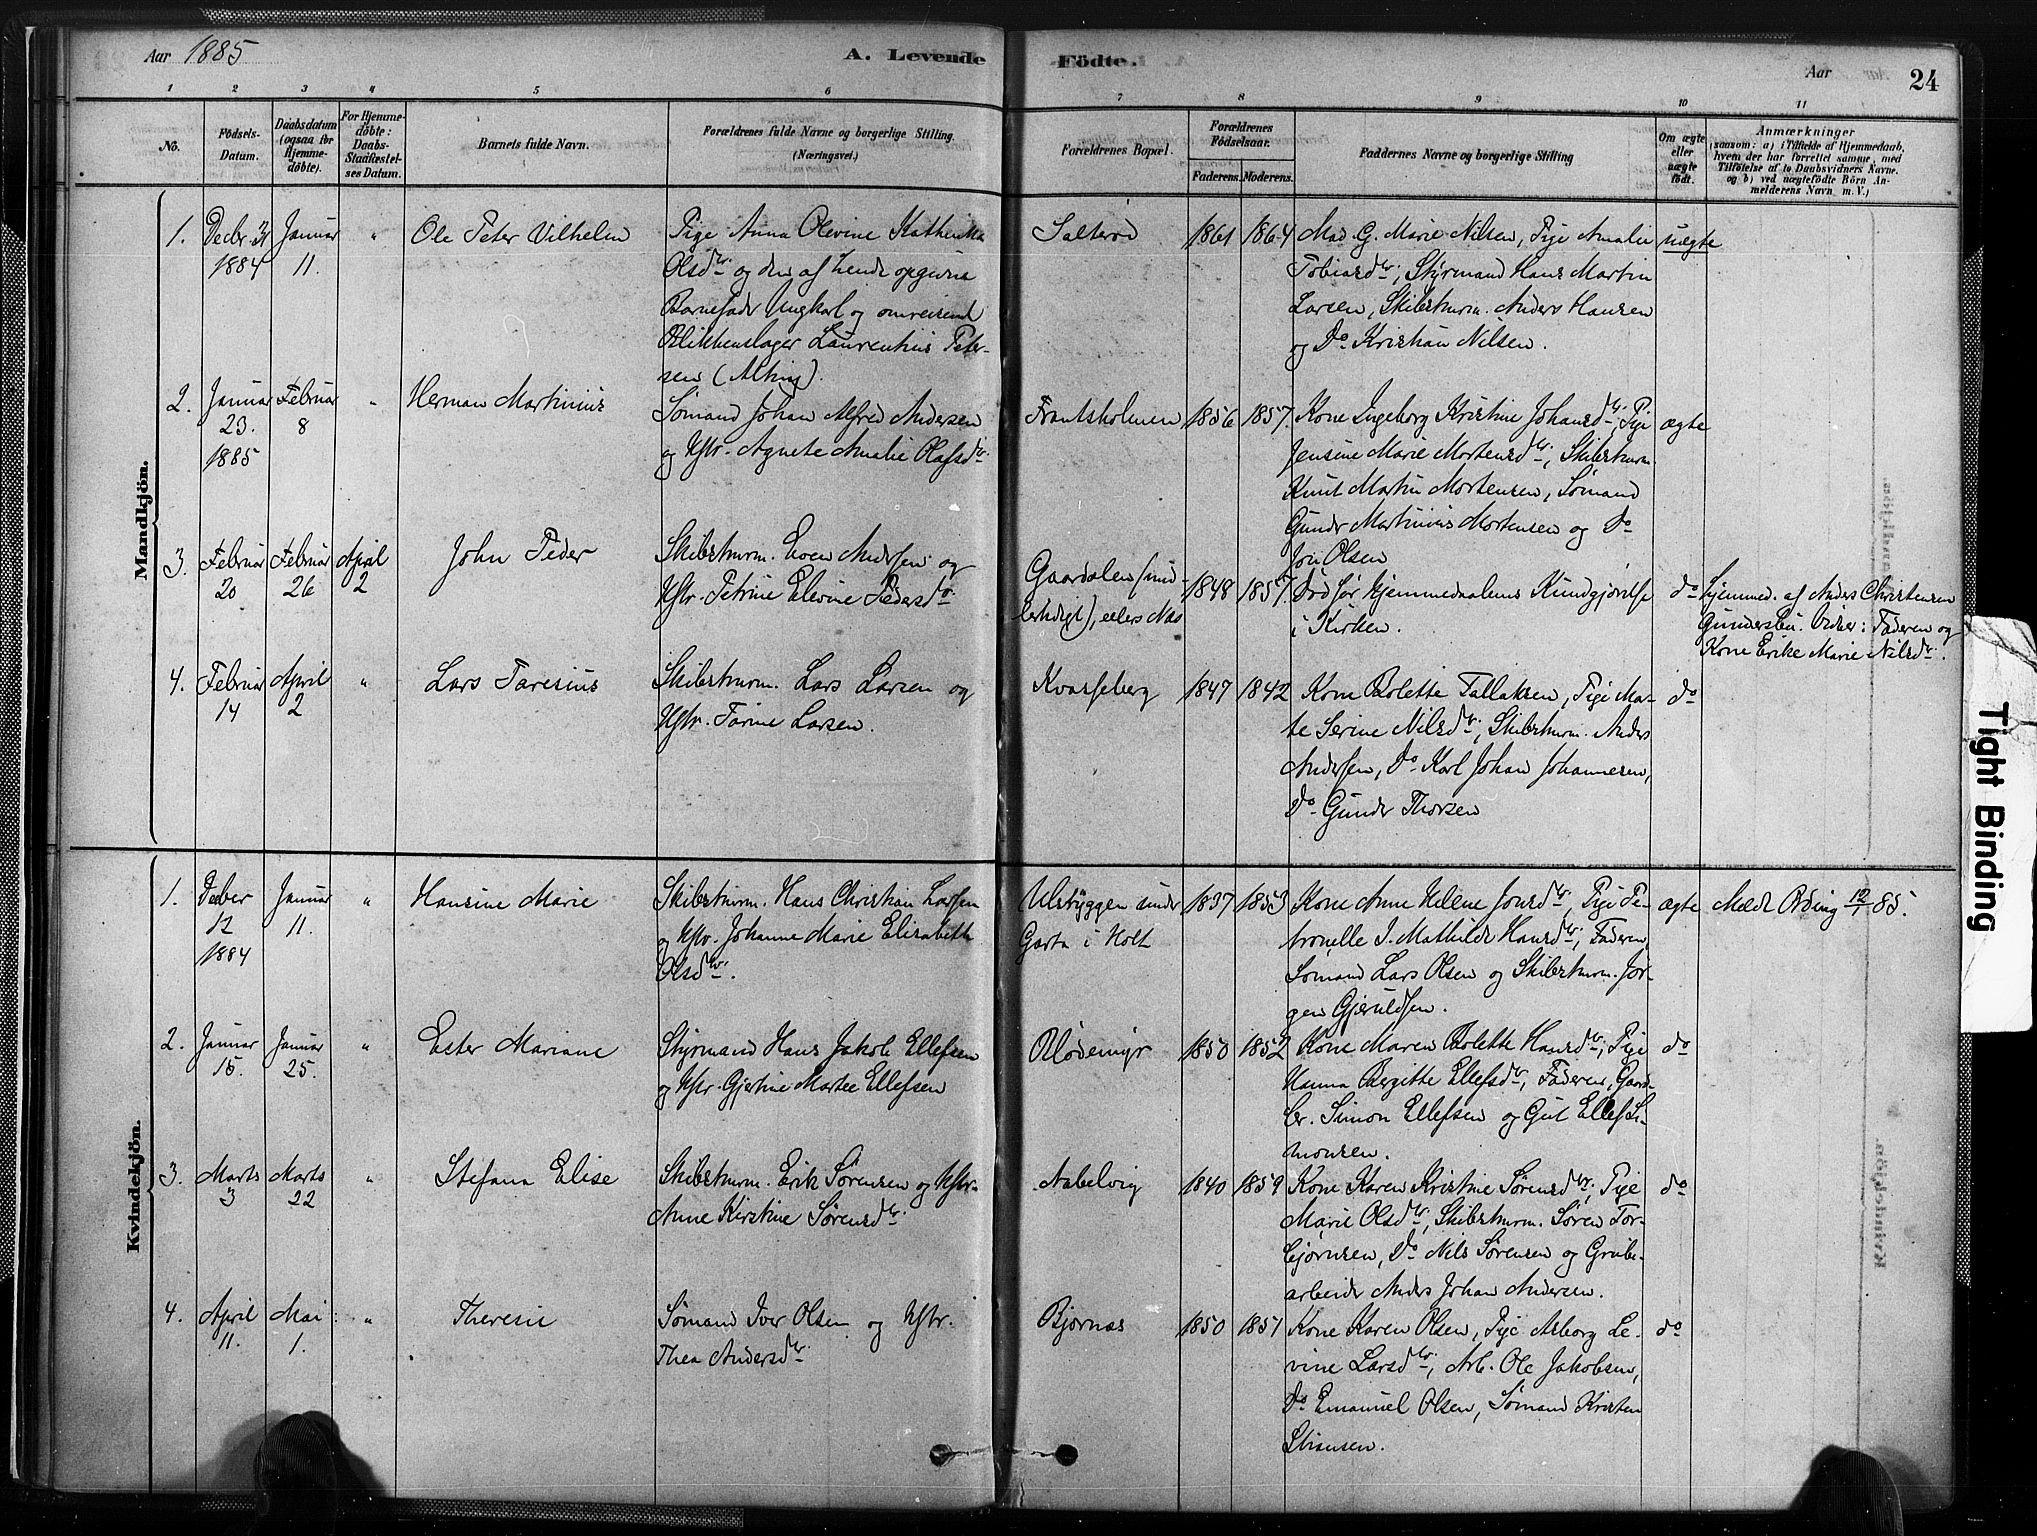 Aar 1885
A. Levende Födte.
Aar
24
1 2 3 4 5 6 7 8 9 10 11
No.
Födsels-
Datum.
Daabsdatum
(ogsaa for
Hjemme-
döbte).
For Hjemme-
döbte:
Daabs-
Stadfæstel-
ses Datum.
Barnets fulde Navn.
Forældrenes fulde Navne og borgerlige Stilling.
(Næringsvei.)
Forældrenes Bopæl.
Forældrenes
Födselsaar.
Faderens. Moderens.
Faddernes Navne og borgerlige Stilling
Om ægte
eller
uægte
födt.
Anmærkninger
(saasom: a) i Tilfælde af Hjemmedaab,
hvem der har forrettet samme, med
Tilföielse af to Daabsvidners Navne.
og b) ved uægtefödte Börn An-
melderens Navn m. V.)
Mandkjön.
1.
Decbr. 31
1884
Januar
11.
"
Ole Peter Vilhelm
Pige Anna Olevine Kathinka
Olsdtr. og den af hende opgivne
Barnefader Ungkarl og omreisend
Blikkenslager Laurentius Peter-
sen
Salterød
1861
1864
Mad. G. Marie Nilsen, Pige Amalie
Tobiasdtr., Styrmand Hans Martin
Larsen, Skibstmrm. Anders Hansen
og Do Kristian Nilsen.
uægte
2.
Januar
23.
1885
Februar
8
"
Herman Martinius
Sømand Johan Alfred Andersen
og Hstr. Agnete Amalie Olafsdtr.
Frantsholmen
1856
1857.
Kone Ingeborg Kristine Johansdtr., Pige
Jensine Marie Mortensdtr., Skibstmrm.
Knut Martin Mortensen, Sømand
Gunder Martinius Mortensen og Do
Jon Olsen
ægte
3.
Februar
20
Februar
26
April
2
John Peder
Skibstmrm. Even Andersen og
Hstr. Petrine Elevine Pedersdtr.
Gaardalen (mid-
lertidigt), ellers Næs
1848
1857.
Død før Hjemmedaabens Kundgjørelse
i Kirken.
do
Hjemmed. af Anders Christensen
Gundersbu. Vidner: Faderen og
Kone Erike Marie Nilsdtr.
4.
Februar
14
April
2
"
Lars Taresius
Skibstmrm. Lars Larsen og
Hstr. Tarine Larsen.
Kvasseberg
1847
1842
Kone Bolette Tallaksen, Pige Mar-
te Serine Nilsdtr., Skibstmrm. Anders
Andersen, Do Karl Johan Johannesen,
Do Gunder Thorsen
do
Kvindekjön.
1.
Decber
12
1884
Januar
11.
"
Hansine Marie
Skibstmrm. Hans Christian Larsen
og Hstr. Johanne Marie Elisabeth
Olsdtr.
Ulsbyggen under
Garta i Holt
1837
1853
Kone Anne Helene Jonsdtr., Pige Pe-
tronelle J. Mathilde Hansdtr., Faderen,
Sømand Lars Olsen og Skibstmrm. Jør-
gen Gjeruldsen.
ægte
12/1 85.
2.
Januar
15.
Januar
25.
"
Ester Mariane
Styrmand Hans Jakob Ellefsen
og Hstr. Gjertine Martee Ellefsen
Blødemyr
1850
1852
Kone Maren Bolette Hansdtr., Pige
Hanna Bergitte Ellefsdtr., Faderen, Gaard-
br. Simon Ellefsen og Gut Ellef Si-
monsen.
do
3.
Marts
3
Marts
22
"
Stefana Elise
Skibstmrm. Erik Sørensen og Hstr.
Anne Kirstine Sørensdtr.
Aabelvig
1840
1859
Kone Karen Kristine Sørensdtr., Pige
Marie Olsdtr., Skibstmrm. Søren Tor-
bjørnsen, Do Nils Sørensen og Grube-
arbeider Anders Johan Andersen.
do
4.
April
11.
Mai
1.
"
Theresie
Sømand Iver Olsen og Hstr.
Thea Andersdtr.
Bjørnæs
1850
1857
Kone Karen Olsen, Pige Asborg Le-
vine Larsdtr., Arb. Ole Jakobsen,
Do Emanuel Olsen, Sømand Kristen
Stiansen.
do
Tight Binding